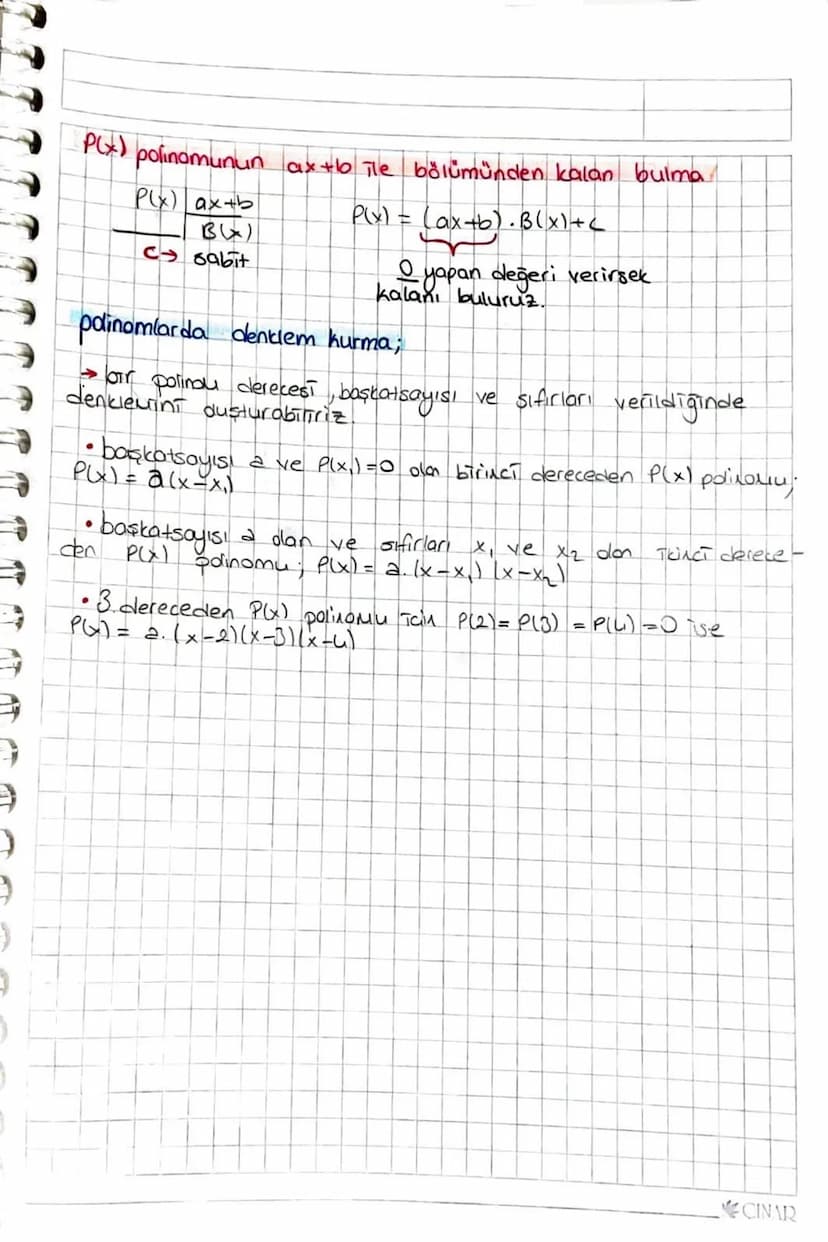 P(x) polinomunun ax+b ile bölümünden kalan bulma
P(x) | ax+b
B(x)
c → sabit
P(x) = (ax+b) . B(x) + c
0 yapan değeri verirsek
kalanı buluruz.
polinomlarda denklem kurma;
→ bir polinom derecesi, başkatsayısı ve sıfırları verildiğinde
denklemini oluşturabiliriz.
• başkatsayısı a ve P(x₁)=0 olan birinci dereceden P(x) polinomu;
P(x) = a(x-x₁)
• başkatsayısı a olan ve sıfırları x₁ ve x₂ olan ikinci derece-
den P(x) polinomu; P(x) = a.(x-x₁)(x-x₂)
• 3. dereceden P(x) polinomu için P(2) = P(3) = P(4) = 0 ise
P(x) = a.(x-2)(x-3)(x-4)
ÇINAR